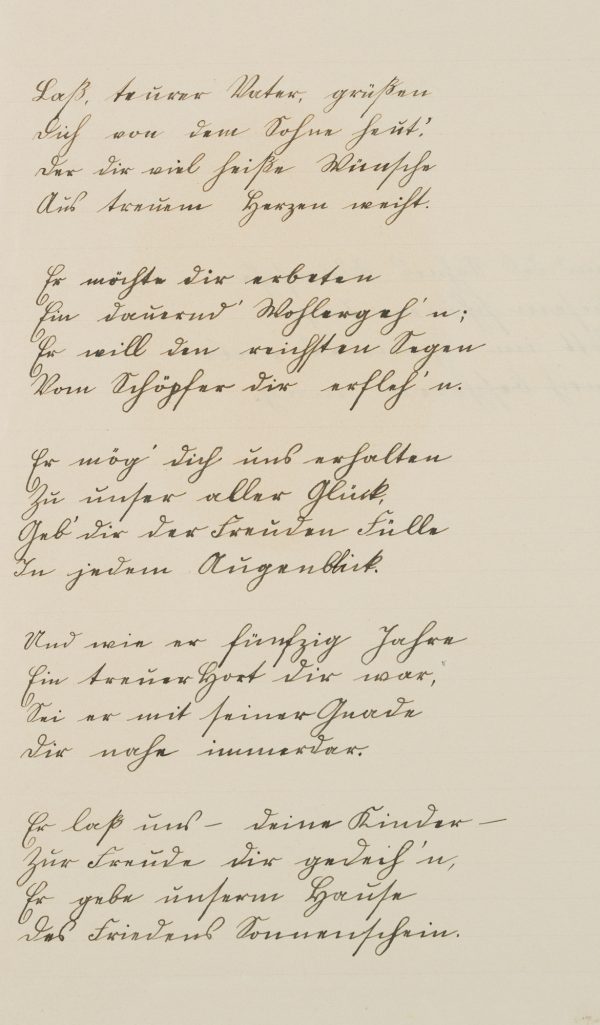 Laß, teurer Vater, grüßen
Dich von dem Sohne heut'.
Der dir viel heiße Wünsche
Aus treuem Herzen weiht.
Er möchte dir erbeten
Ein dauernd' Wohlergeh'n;
Er will den reichsten Segen
Vom Schöpfer dir erfleh'n.
Er mög' dich uns erhalten
Zu unser aller Glück,
Geb' dir der Freuden Fülle
In jedem Augenblick.
Und wie er fünfzig Jahre
Ein treuer Hort dir war,
Sei er mit seiner Gnade
Dir nahe immerdar.
Er laß uns – deine Kinder –
Zur Freude dir gedeih'n,
Er gebe unserm Hause
Des Friedens Sonnenschein.